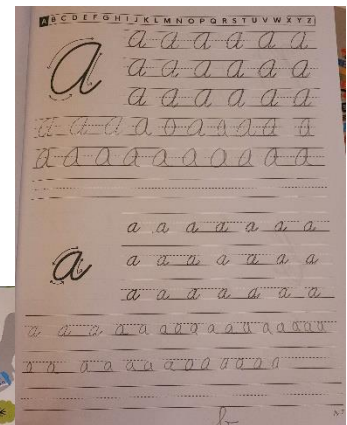 A B C D E F G H I J K L M N O P Q R S T U V W X Y Z
a a a a a a a
a a a a a a
a a a a a a
a a a a a a a a a
a a a a a a a a a a
a a a a a a a a
a a a a a a
a a a a a a
a a a a a a a a a a a a a a
a a a a a a a a a a a a